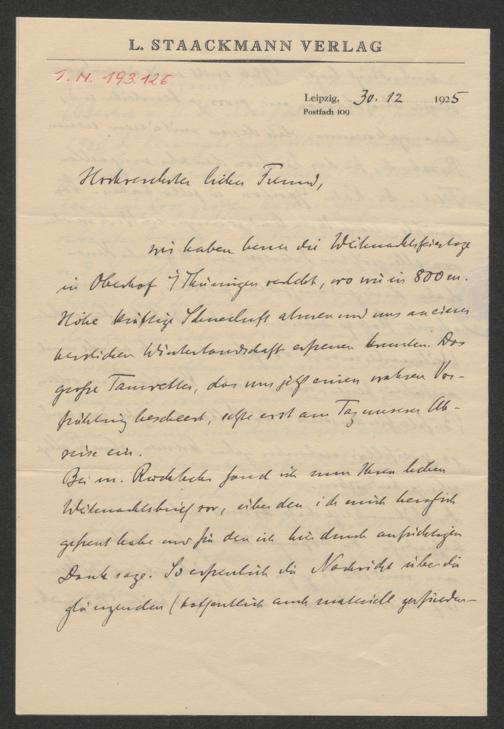 L. STAACKMANN VERLAG
I. N. 193.126
Leipzig, 30. 12 1925
Postfach 109
Hochverehrter lieber Freund,
wir haben heuer die Weihnachtsfeiertage
in Oberhof i/Thüringen verlebt, wo wir in 800 m.
Höhe kräftige Schneeluft atmen und uns an einer
herrlichen Winterlandschaft erfreuen konnten. Das
große Tauwetter, das uns jetzt einen wahren Vor-
frühling bescheert, setzte erst am Tag unserer Ab-
reise ein.
Bei m. Rückkehr fand ich nun Ihren lieben
Weihnachtsbrief vor, über den ich mich herzlich
gefreut habe und für den ich hierdurch aufrichtigen
Dank sage. So erfreulich die Nachricht über die
glänzenden (hoffentlich auch materiell zufrieden-